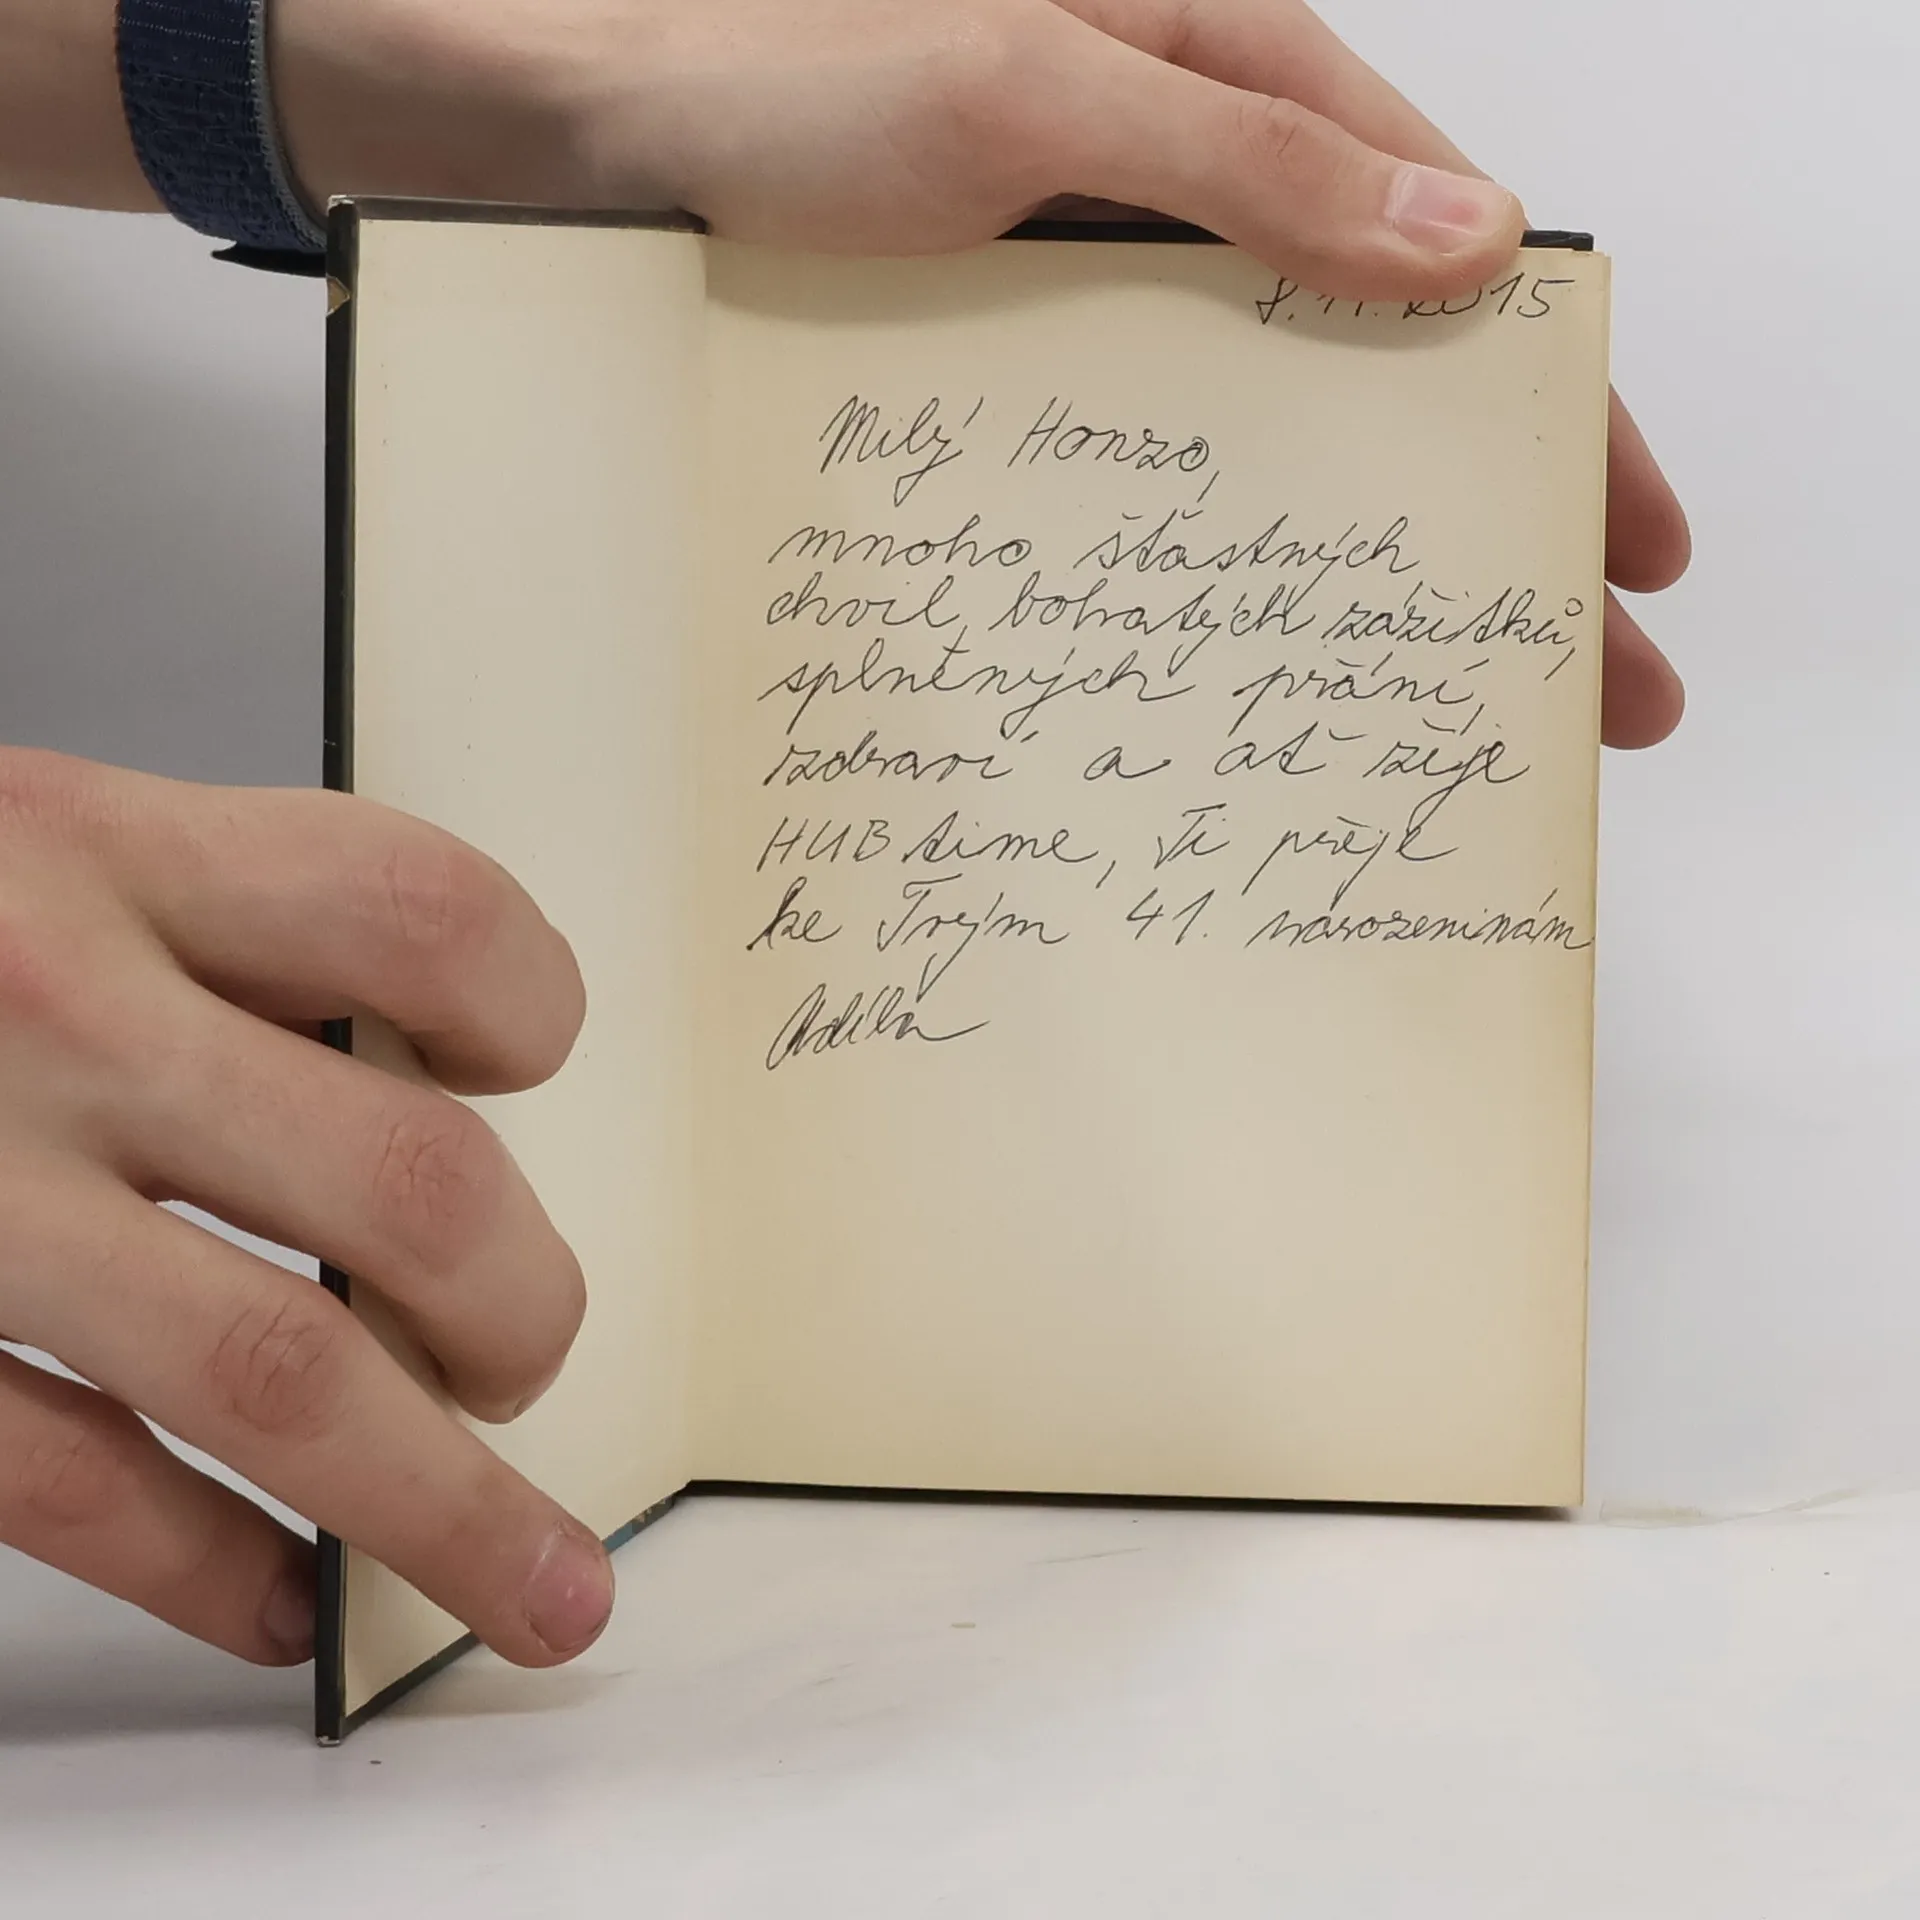 8. 11. 2015
Milý Honzo,
mnoho šťastných
chvil, bohatých zážitků,
splněných přání,
zdraví a ať žije
HUB time, Ti přeje
ke Tvým 41. narozeninám
Adéla